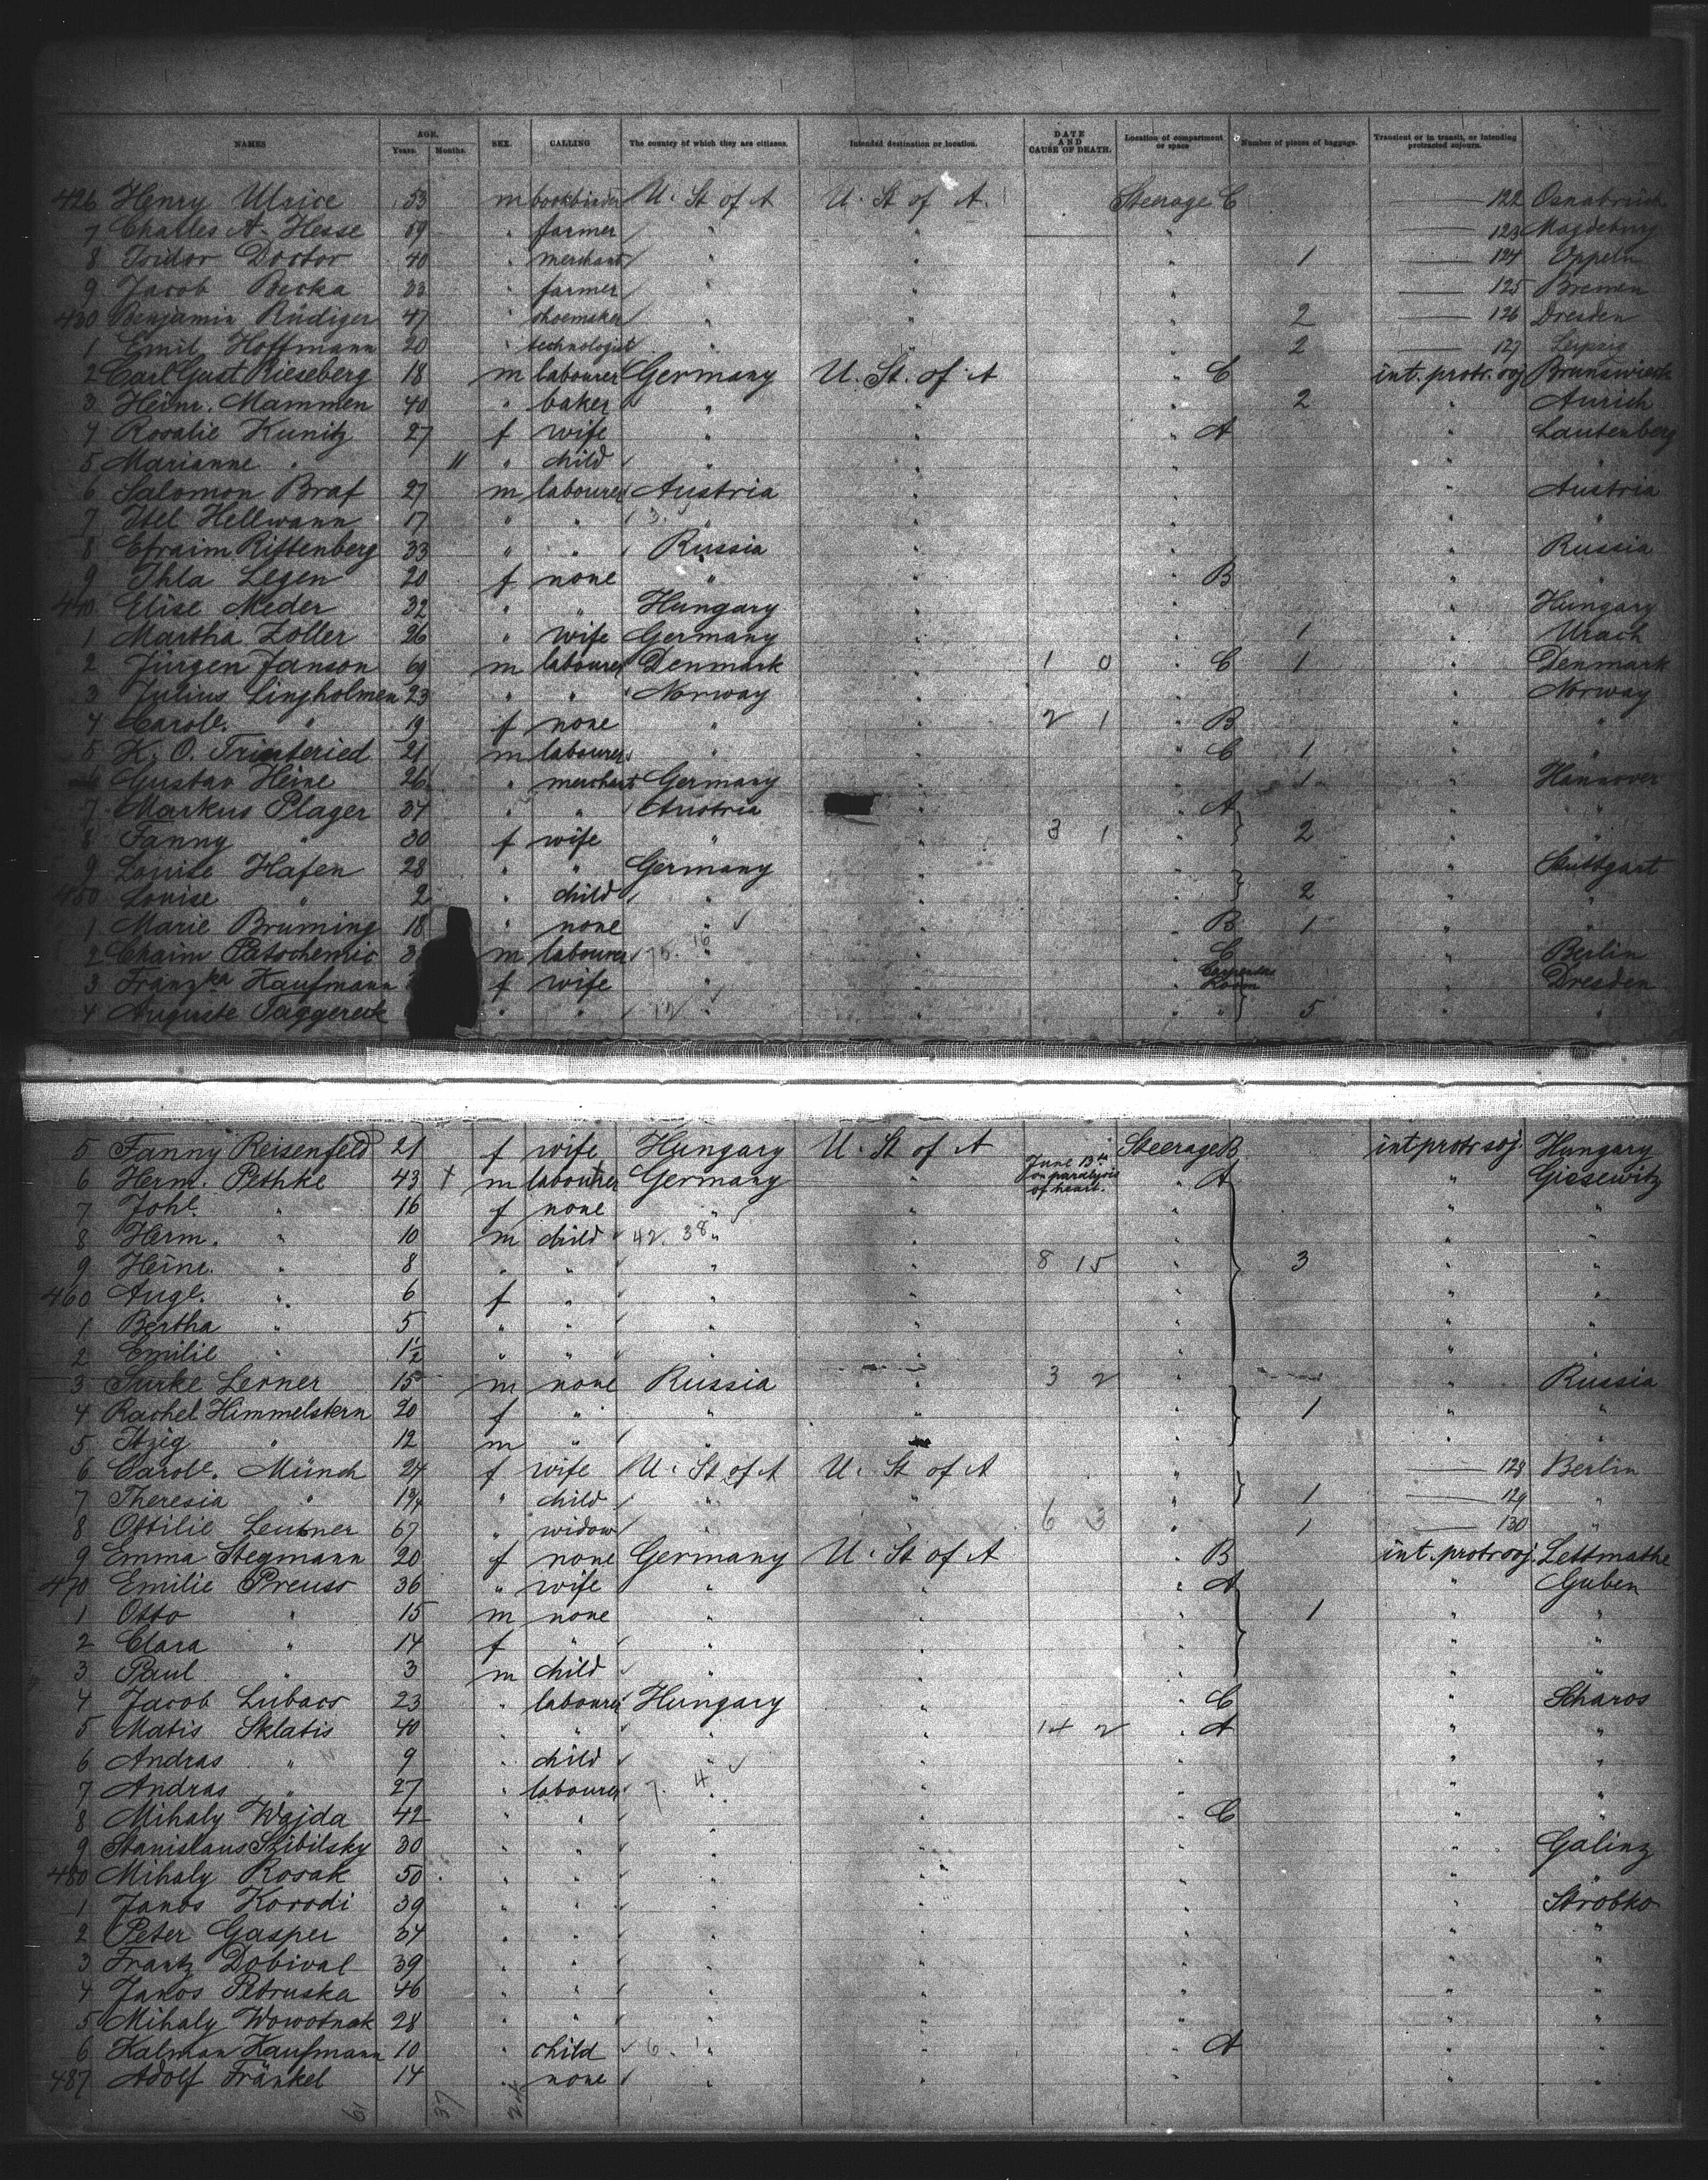 NAMES AGE. Years. Months. SEX. CALLING The country of which they are citizens. Intended destination or location. DATE AND CAUSE OF DEATH. Location of compartment or space Number of pieces of baggage. Transient or in transit, or intending protracted sojourn.
426 Henry Ulrice 53 m bookbinder U. St of A U. St of A. Steerage C 122 Osnabrück
7 Charles A. Hesse 59 " farmer " " " 123 Magdeburg
8 Isidor Doctor 40 " merchant " " " 1 124 Oppeln
9 Jacob Becka 23 " farmer " " " 125 Bremen
430 Benjamin Rüdiger 47 " shoemaker " " " 2 126 Dresden
1 Emil Hoffmann 20 " technologist " " " 2 127 Leipzig
2 Carl Gust Rieseberg 18 m labourer Germany U. St. of A " C int. protr. soj Brunswick
3 Heinr. Mammen 40 " baker " " " 2 " Aurich
4 Rosalie Kunitz 27 f wife " " " A " Lautenberg
5 Marianne " 11 " child " " " " "
6 Salomon Braf 27 m labourer Austria " " " Austria
7 Hellwann 17 " " " " " " "
8 Efraim Rittenberg 33 " " Russia " " " Russia
9 Thla Legen 20 f none " " " B " "
440 Elise Meder 32 " " Hungary " " " Hungary
1 Martha Zoller 26 " wife Germany " " 1 " Urach
2 Jürgen Janson 69 m labourer Denmark " 1 0 " C 1 " Denmark
3 Julius Lingholmen 23 " " Norway " " " Norway
4 Carole. " 19 f none " " 2 1 " B " "
5 K. O. 21 m labourer " " " C 1 " "
6 Gustav Heine 26 " merchant Germany " " 1 " Hannover
7 Markus Plager 37 " " Austria " " A " "
8 Fanny " 30 f wife " " 3 1 " 2 " "
9 Louise Hafen 28 " " Germany " " " Stuttgart
450 Louise " 2 " child " " " 2 " "
1 Marie Bruming 18 " none " " " B 1 " "
2 Chaim Patschemic 3 m labourer 75. 16 " " " C " Berlin
3 Franzka Kaufmann f wife " " " Carpenter Room " Dresden
4 Auguste Taggereck " " 12 " " " " 5 " "
5 Fanny Reisenfeld 21 f wife Hungary U. St of A Steerage B int protr soj Hungary
6 Herm. Pethke 43 † m labourer Germany " June 13th on paralysis of heart. " A " Giesewitz
7 Johe. " 16 f none " " " " "
8 Herm. " 10 m child 42. 38 " " " " "
9 Heinr. " 8 " " " " 8 15 " 3 " "
460 Auge. " 6 f " " " " " "
1 Bertha " 5 " " " " " " "
2 Emilie " 1½ " " " " " " "
3 Surke Lerner 15 m none Russia " 3 2 " " Russia
4 Rachel Himmelstern 20 f " " " " 1 " "
5 Itzig " 12 m " " " " " "
6 Carole. Münch 24 f wife U. St of A U. St of A " 128 Berlin
7 Theresia " 1¾ " child " " " 1 129 "
8 Ottilie Leutner 67 " widow " " 6 3 " 1 130 "
9 Emma Stegmann 20 f none Germany U. St of A " B int. protr soj. Lettmathe
470 Emilie Preuss 36 " wife " " " A " Guben
1 Otto " 15 m none " " " 1 " "
2 Clara " 14 f " " " " " "
3 Paul " 3 m child " " " " "
4 Jacob Lubacs 23 " labourer Hungary " " C " Scharos
5 Matis Sklatis 40 " " " " 14 2 " A " "
6 Andras " 9 " child " " " " "
7 Andras " 27 " labourer 7. 4 " " " " "
8 Mihaly Wajda 42 " " " " " C " "
9 Stanislaus Szibilsky 30 " " " " " " Galinz
480 Mihaly Rosak 50 " " " " " " "
1 Janos Korodi 39 " " " " " " Strobko
2 Peter Gasper 34 " " " " " " "
3 Frantz Dobival 39 " " " " " " "
4 Janos Petruska 46 " " " " " " "
5 Mihaly Wowotnak 28 " " " " " " "
6 Kalman Kaufmann 10 " child 6. 1 " " " A " "
487 Adolf Fränkel 14 " none " " " " "
61 37 24